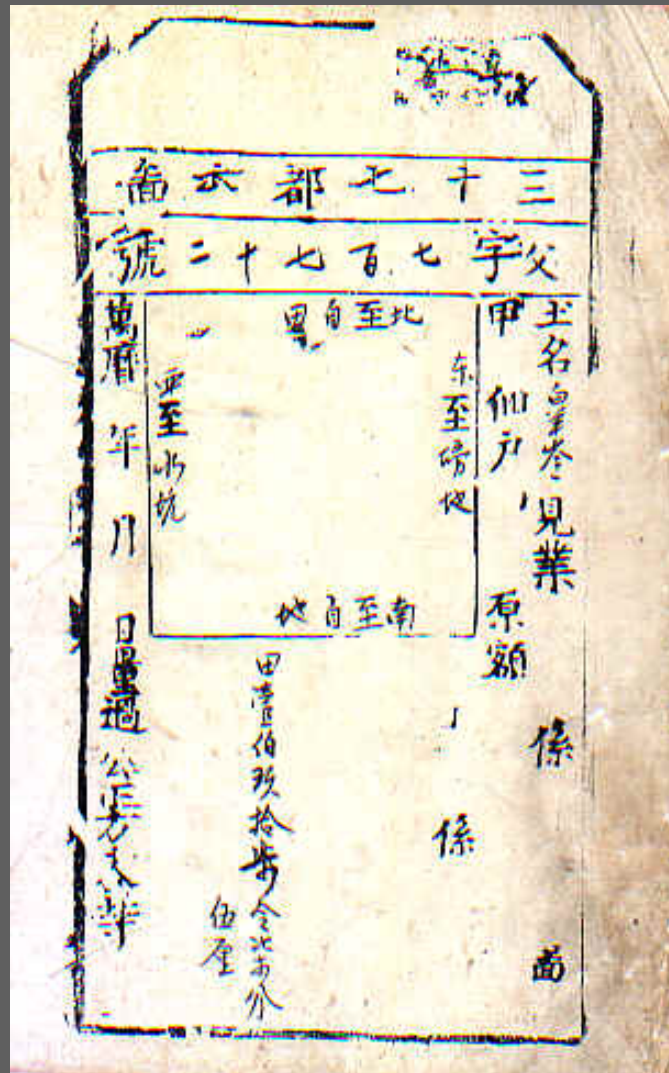 三十七都六啚
父字七百七十二號
土名 見業 係 啚
甲 佃戶 原額 係
东至塝地
北至自田
南至自地
西至水坑
田壹伯玖拾
伍厘
萬曆 年 月 日量過 公正